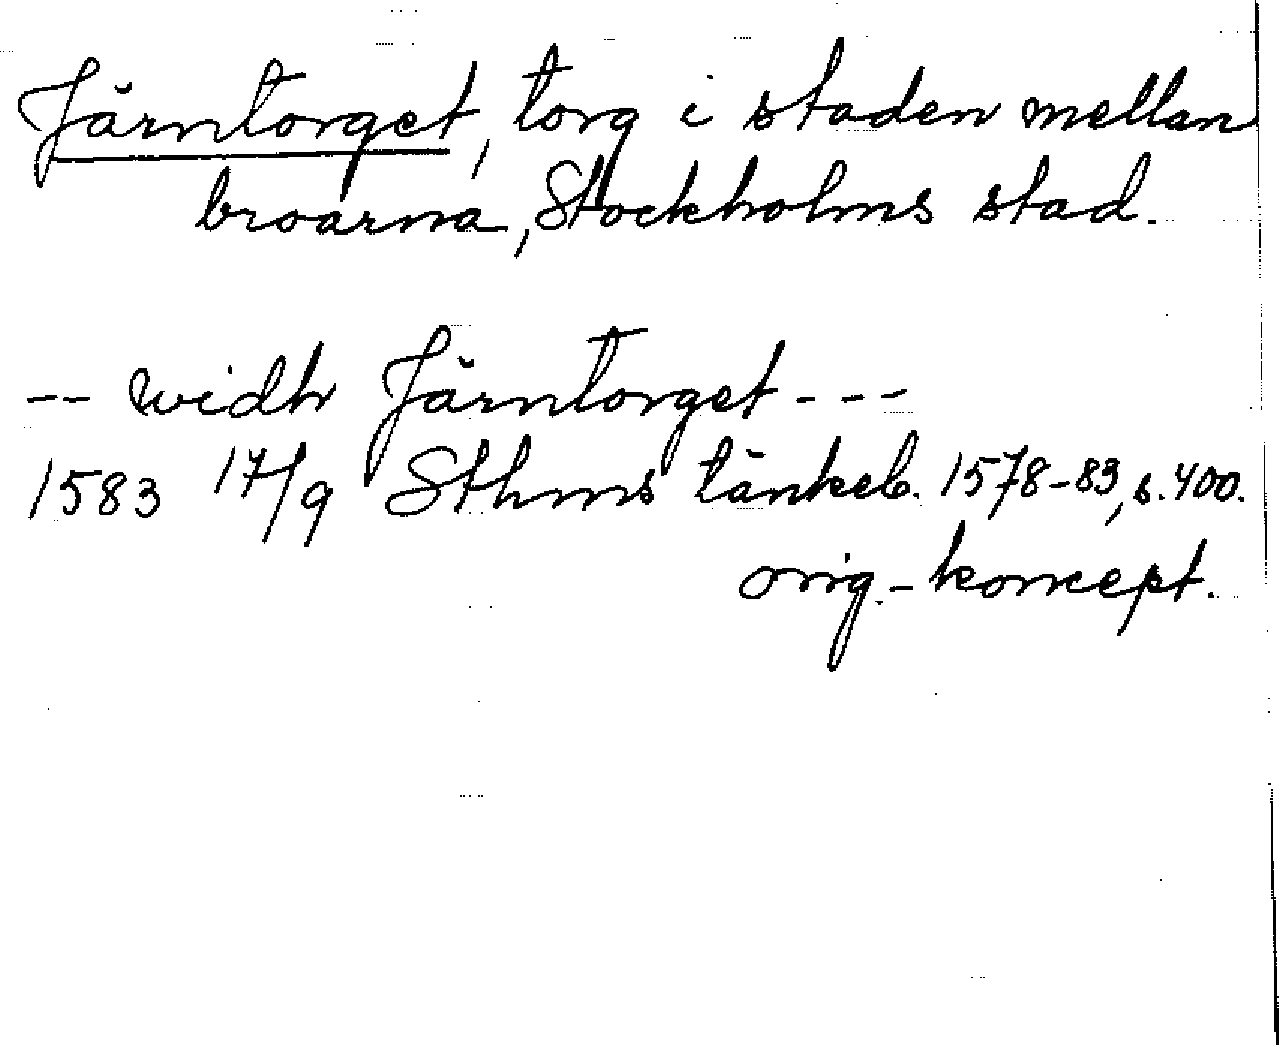 Järntorget, torg i staden mellan
broarna, Stockholms stad.
-- widh Järntorget ---
1583 17/9 Sthms tänkeb. 1578-83, s. 400.
orig.-koncept.